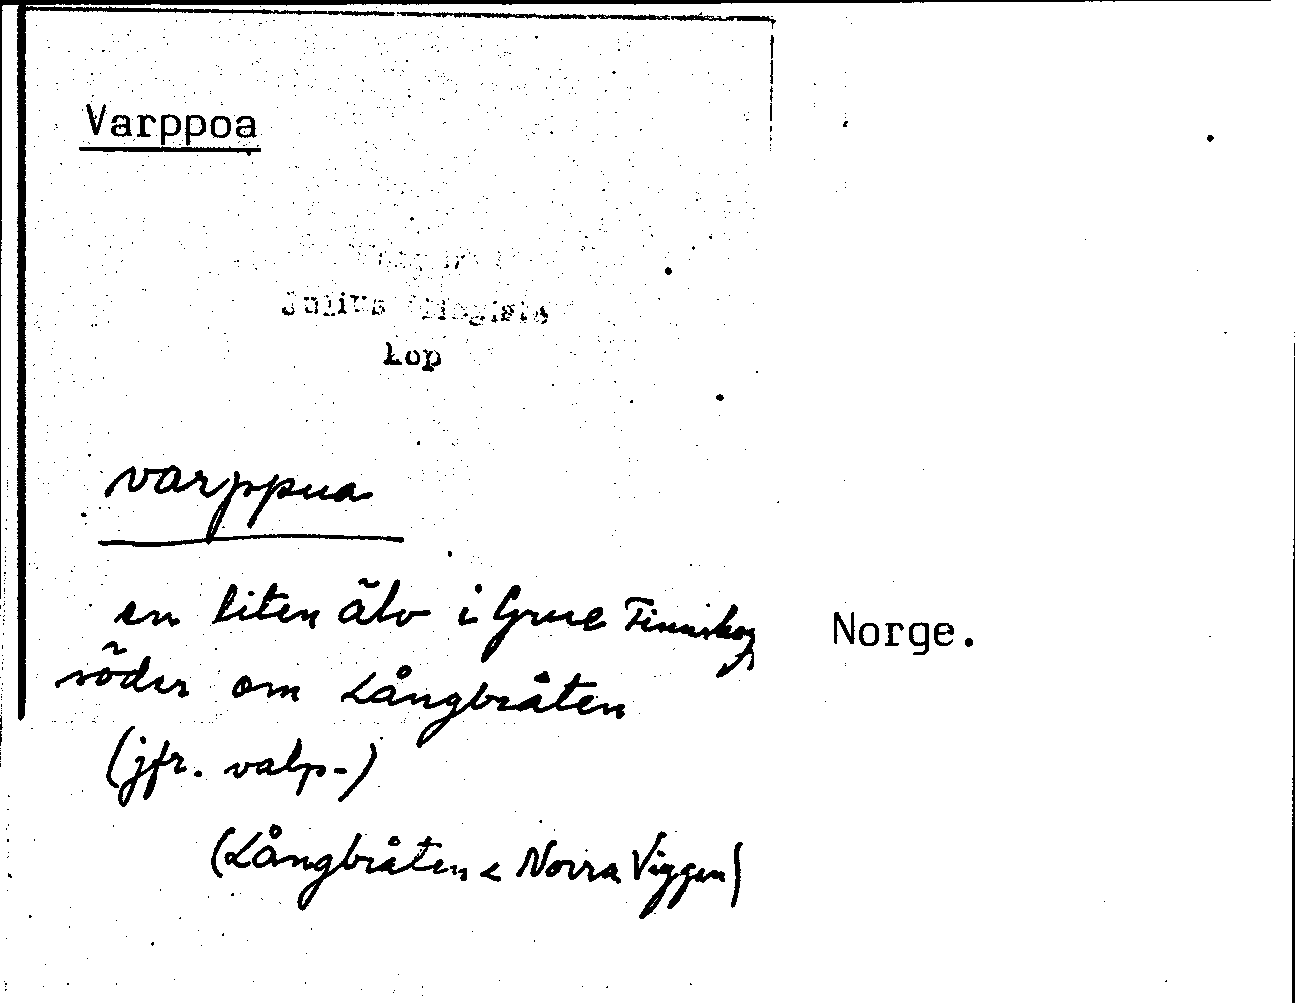 Varppoa
Julius Mägiste
kop
varppua
en liten älv i Grue Finnskog, Norge.
söder om Långbråten
(jfr. valp-)
(Långbråten < Norra Viggen)